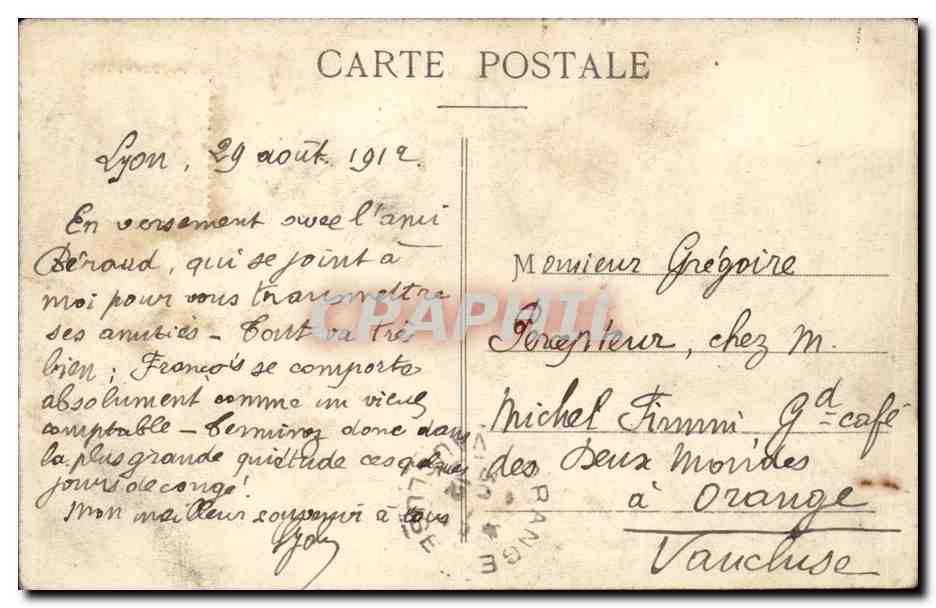 CARTE POSTALE
Lyon, 29 août 1912.
En versement avec l'ami
Béraud, qui se joint à
moi pour vous transmettre
ses amitiés - Tout va très
bien; François se comporte
absolument comme un vieux
comptable - Terminez donc dans
la plus grande quiétude ces quelques
jours de congé!
Mon meilleur souvenir à tous
Monsieur Grégoire
Percepteur, chez M.
Michel Firmin, Gd café
des Deux Mondes
à Orange
Vaucluse
CPAPHIL
ORANGE
VAUCLUSE